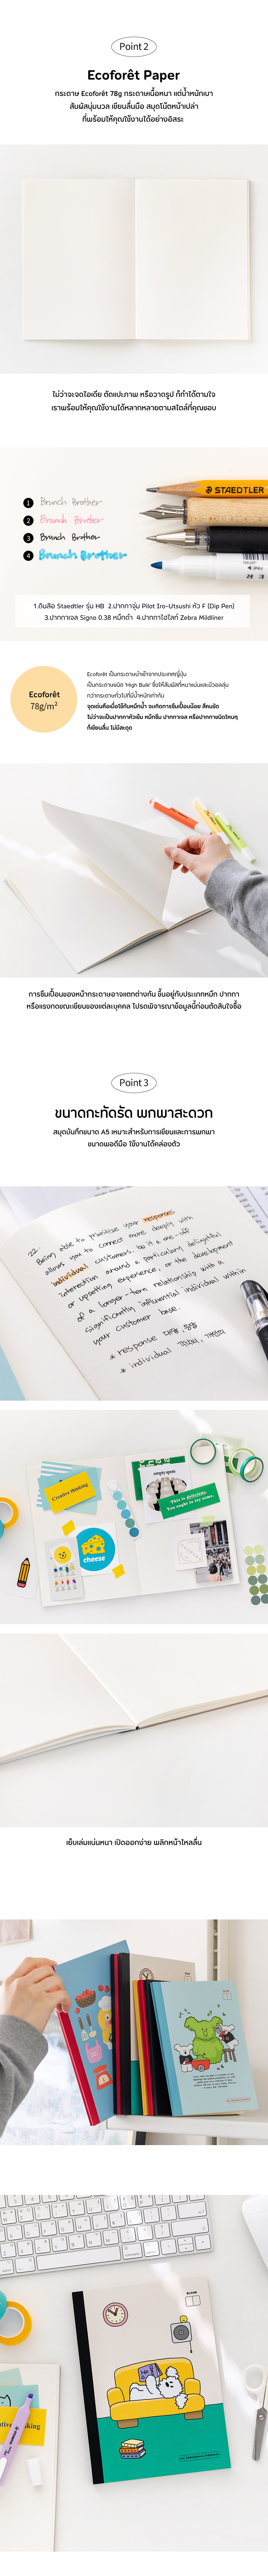 Point 2
Ecoforêt Paper
กระดาษ Ecoforêt 78g กระดาษเนื้อหนา แต่น้ำหนักเบา
สัมผัสนุ่มนวล เขียนลื่นมือ สมุดโน้ตหน้าเปล่า
ที่พร้อมให้คุณใช้งานได้อย่างอิสระ
ไม่ว่าจะจดไอเดีย ตัดแปะภาพ หรือวาดรูป ก็ทำได้ตามใจ
เราพร้อมให้คุณใช้งานได้หลากหลายตามสไตล์ที่คุณชอบ
1 Brunch Brother
2 Brunch Brother
3 Brunch Brother
4 Brunch Brother
STAEDTLER
1.ดินสือ Staedtler รุ่น HB 2.ปากกาจุ่ม Pilot Iro-Utsushi หัว F (Dip Pen)
3.ปากกาเจล Signo 0.38 หมึกดำ 4.ปากกาไฮไลท์ Zebra Mildliner
Ecoforêt
78g/m²
Ecoforêt เป็นกระดาษนำเข้าจากประเทศญี่ปุ่น
เป็นกระดาษชนิด 'High Bulk' ซึ่งให้สัมผัสที่หนาแน่นและมีวอลลุ่ม
กว่ากระดาษทั่วไปที่มีน้ำหนักเท่ากัน
จุดเด่นคือเมื่อใช้กับหมึกน้ำ จะเกิดการซึมเปื้อนน้อย สีคมชัด
ไม่ว่าจะเป็นปากกาหัวเข็ม หมึกซึม ปากกาเจล หรือปากกาชนิดไหนๆ
ก็เขียนลื่น ไม่มีสะดุด
การซึมเปื้อนของหน้ากระดาษอาจแตกต่างกัน ขึ้นอยู่กับประเภทหมึก ปากกา
หรือแรงกดขณะเขียนของแต่ละบุคคล โปรดพิจารณาข้อมูลนี้ก่อนตัดสินใจซื้อ
Point 3
ขนาดกะทัดรัด พกพาสะดวก
สมุดบันทึกขนาด A5 เหมาะสำหรับการเขียนและการพกพา
ขนาดพอดีมือ ใช้งานได้คล่องตัว
22.
Being able to prioritise your response
allows you to connect more deeply with
individual customers, be it a one-off
interaction around a particularly delightful
or upsetting experience, or the development
of a longer-term relationship with a
significantly influential individual within
your customer base.
* response 대응, 응답
* individual 각각의, 개인의
Creative thinking
empty spots
This is delicious.
You ought to try some.
cheese
เย็บเล่มแน่นหนา เปิดออกง่าย พลิกหน้าไหลลื่น
BLANK